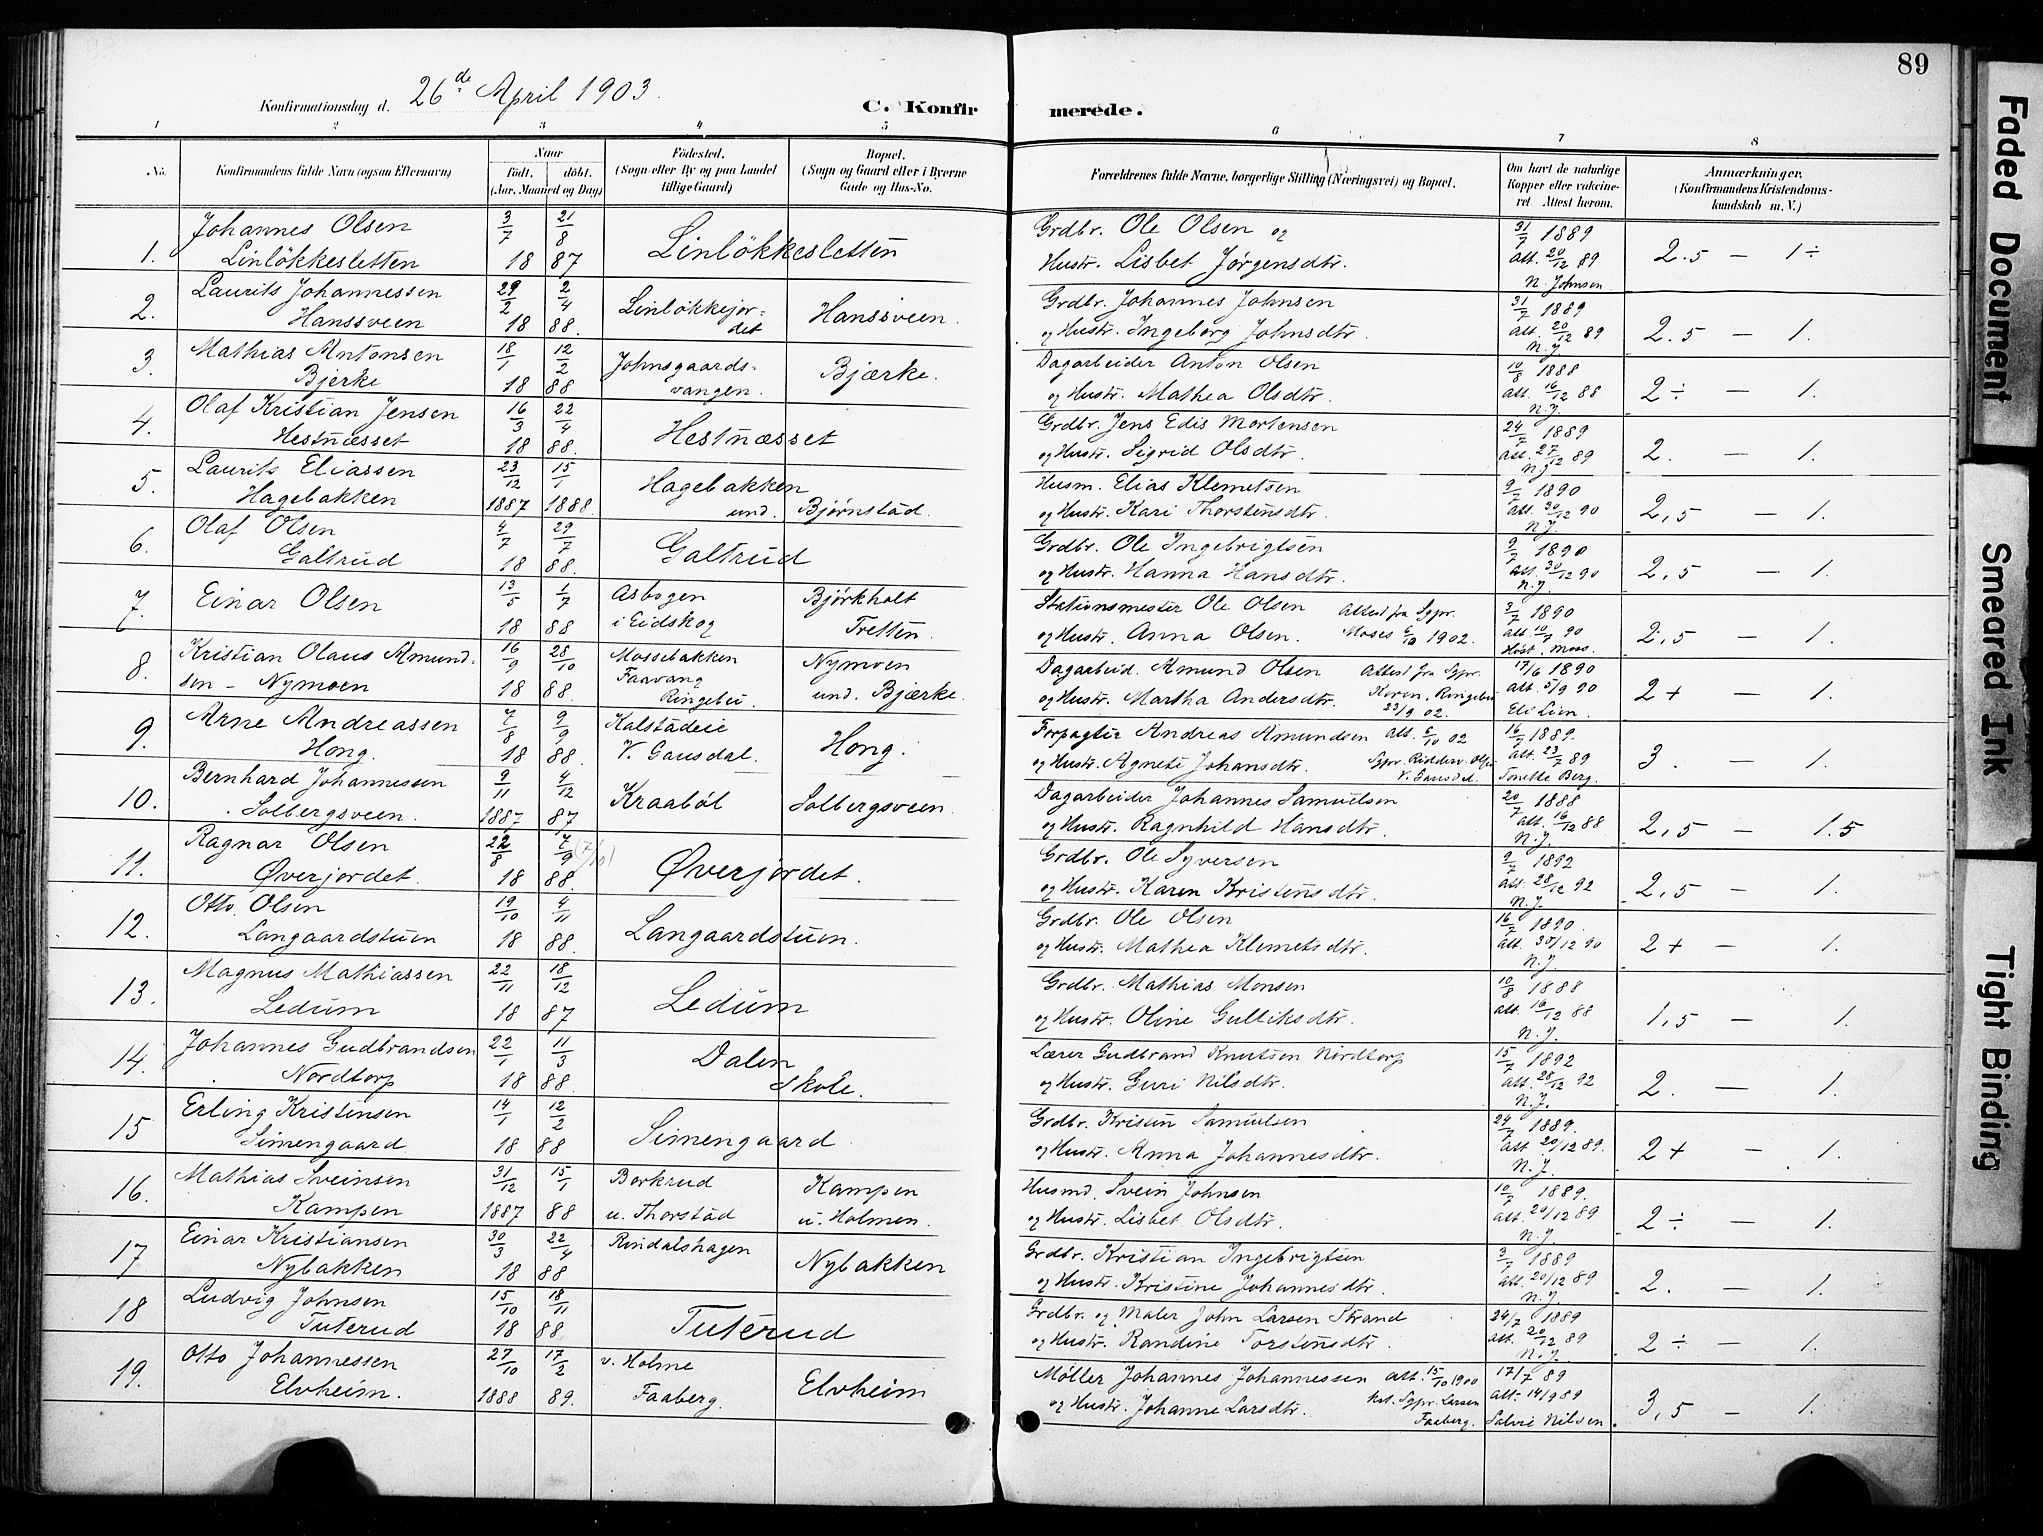 89
Konfirmationsdag d. 26de April 1903.
C. Konfirmerede.
1 2 3 4 5 6 7 8
No. Konfirmandens fulde Navn (ogsaa Efternavn) Naar født. døbt. (Aar, Maaned og Dag) Fødested. (Sogn eller By og paa Landet tillige Gaard) Bopæl. (Sogn og Gaard eller i Byerne Gade og Hus-No. Forældrenes fulde Navne, borgerlige Stilling (Næringsvei) og Bopæl. Om havt de naturlige Kopper eller vaccineret. Attest herom. Anmærkninger. (Konfirmandens Kristendomskundskab m. V.)
1. Johannes Olsen Linløkkesletten 3/7 21/8 18 87 Linløkkesletten Grdbr. Ole Olsen og Hustr. Lisbet Jørgensdtr. 31/7 1889 att. 20/12 89 N. Johnsen 2.5 — 1÷
2. Laurits Johannessen Hanssveen 29/2 2/4 18 88. Linløkkejordet Hanssveen. Grdbr. Johannes Johnsen og Hustr. Ingeborg Johnsdtr. 31/7 1889 att. 20/12 89 N.J. 2.5 — 1.
3. Mathias Antonsen Bjerke 18/1 12/2 18 88 Johnsgaardsvangen. Bjærke. Dagarbeider Anton Olsen og Hustr. Mathea Olsdtr. 10/8 1888 att. 16/12 88 N.J. 2÷ — 1.
4. Olaf Kristian Jensen Hestnæsset 16/3 22/4 18 88. Hestnæsset Grdbr. Jens Edis Mortensen og Hustr. Sigrid Olsdtr. 24/7 1889 att. 27/12 89 N.J. 2. — 1.
5. Laurits Eliassen Hagebakken 23/12 15/1 1887 1888. Hagebakken und. Bjørnstad. Husm. Elias Klemetsen og Hustr. Kari Thorstensdtr. 9/7 1890 att. 30/12 90 N.J. 2,5 — 1.
6. Olaf Olsen Galtrud 4/7 29/7 18 88. Galtrud Grdbr. Ole Ingebrigtsen og Hustr. Hanna Hansdtr. 9/7 1890 att. 30/12 90 N.J. 2,5 — 1.
7. Einar Olsen 13/5 1/7 18 88 Asbogen i Eidskog Bjørkholt Tretten. Stationsmester Ole Olsen og Hustr. Anna Olsen. Attest fra Sgpr. Moses 6/10 1902. 3/7 1890 att. 10/7 90 Høst, Moss. 2,5 — 1.
8. Kristian Olaus Amundsen - Nymoen 16/9 28/10 18 88. Mossebakken Faavang Ringebu. Nymoen und. Bjærke. Dagarbeid. Amund Olsen og Hustr. Martha Andersdtr. Attest fra Sgpr. Ringebu 23/9 02. 17/6 1890 att. 5/9 90 Eli Lien. 2+ — 1.
9. Arne Andreassen Hong. 7/8 9/9 18 88. Kalstadeie V. Gausdal. Hong. Forpagter Andreas Amundsen og Hustr. Agnete Johansdtr. att. 6/10 02 Sgpr. V. Gausdal. 16/7 1889. att. 23/7 89 Tonette Berg. 3. — 1.
10. Bernhard Johannessen Solbergsveen. 9/11 4/12 1887 87 Kraabøl Solbergsveen. Dagarbeider Johannes Samuelsen og Hustr. Ragnhild Hansdtr. 20/7 1888 att. 16/12 88 N.J. 2,5 — 1.5
11. Ragnar Olsen Øverjordet. 22/8 7/9 (7/10) 18 88. Øverjordet. Grdbr. Ole Syversen og Hustr. Karen Kristensdtr. 9/7 1892 att. 28/12 92 N.J. 2,5 — 1.
12. Otto Olsen Langaardstuen 19/10 4/11 18 88. Langaardstuen. Grdbr. Ole Olsen og Hustr. Mathea Klemetsdtr. 16/7 1890. att. 30/12 90 N.J. 2+ — 1.
13. Magnus Mathiassen Ledum 22/11 18/12 18 87 Ledum Grdbr. Mathias Monsen og Hustr. Oline Gulliksdtr. 10/8 1888 att. 16/12 88 N.J. 1,5 — 1.
14. Johannes Gudbrandsen Nordtorp 22/1 11/3 18 88. Dalen Skole. Lærer Gudbrand Knutsen Nordtorp og Hustr. Guri Nilsdtr. 15/7 1892 att. 28/12 92 N.J. 2. — 1.
15 Erling Kristensen Simengaard 14/1 12/2 18 88 Simengaard Grdbr. Kristen Samuelsen og Hustr. Anna Johannesdtr. 24/7 1889. att 20/12 89. N.J. 2+ — 1.
16. Mathias Sveinsen Kampen 31/12 15/1 1887 88 Borkrud u. Thorstad Kampen u. Holmen. Husmd. Svein Johnsen og Hustr. Lisbet Olsdtr. 10/7 1889. att. 20/12 89 N.J. 2÷ — 1.
17 Einar Kristiansen Nybakken 30/3 22/4 18 88 Rindalshagen Nybakken Grdbr. Kristian Ingebrigtsen og Hustr. Kristine Johannesdtr. 3/7 1889 att. 20/12 89 N.J. 2. — 1.
18 Ludvig Johnsen Tuterud 15/10 18/11 18 88. Tuterud Grdbr. og Maler John Larsen Strand og Hustr. Randine Torstensdtr. 24/7 1889 att. 20/12 89 N.J. 2÷ — 1.
19. Otto Johannessen Elvheim. 27/10 17/2 1888 89. v. Holme Faaberg. Elvheim Møller Johannes Johannessen og Hustr. Johanne Larsdtr. att. 15/10 1900 Sgpr. Larsen Faaberg. 17/7 89 att. 14/9 89 Salvie Nilsen. 3,5 — 1.
Faded Document
Smeared Ink
Tight Binding